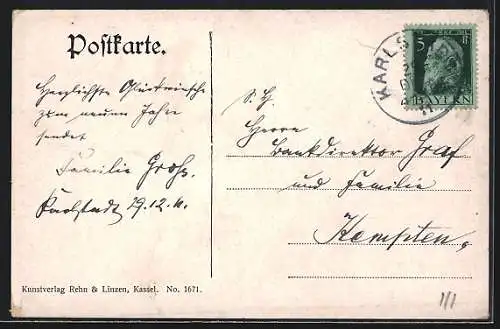 Postkarte.
Herzlichste Glückwünsche
zum neuen Jahre
sendet
Familie
Karlstadt 29.12.11.
S. H.
Herrn
Bankdirektor Graf
und Familie
Kempten.
KARLS
11
5 Pf
BAYERN
Kunstverlag Rehn & Linzen, Kassel. No. 1671.
1/1